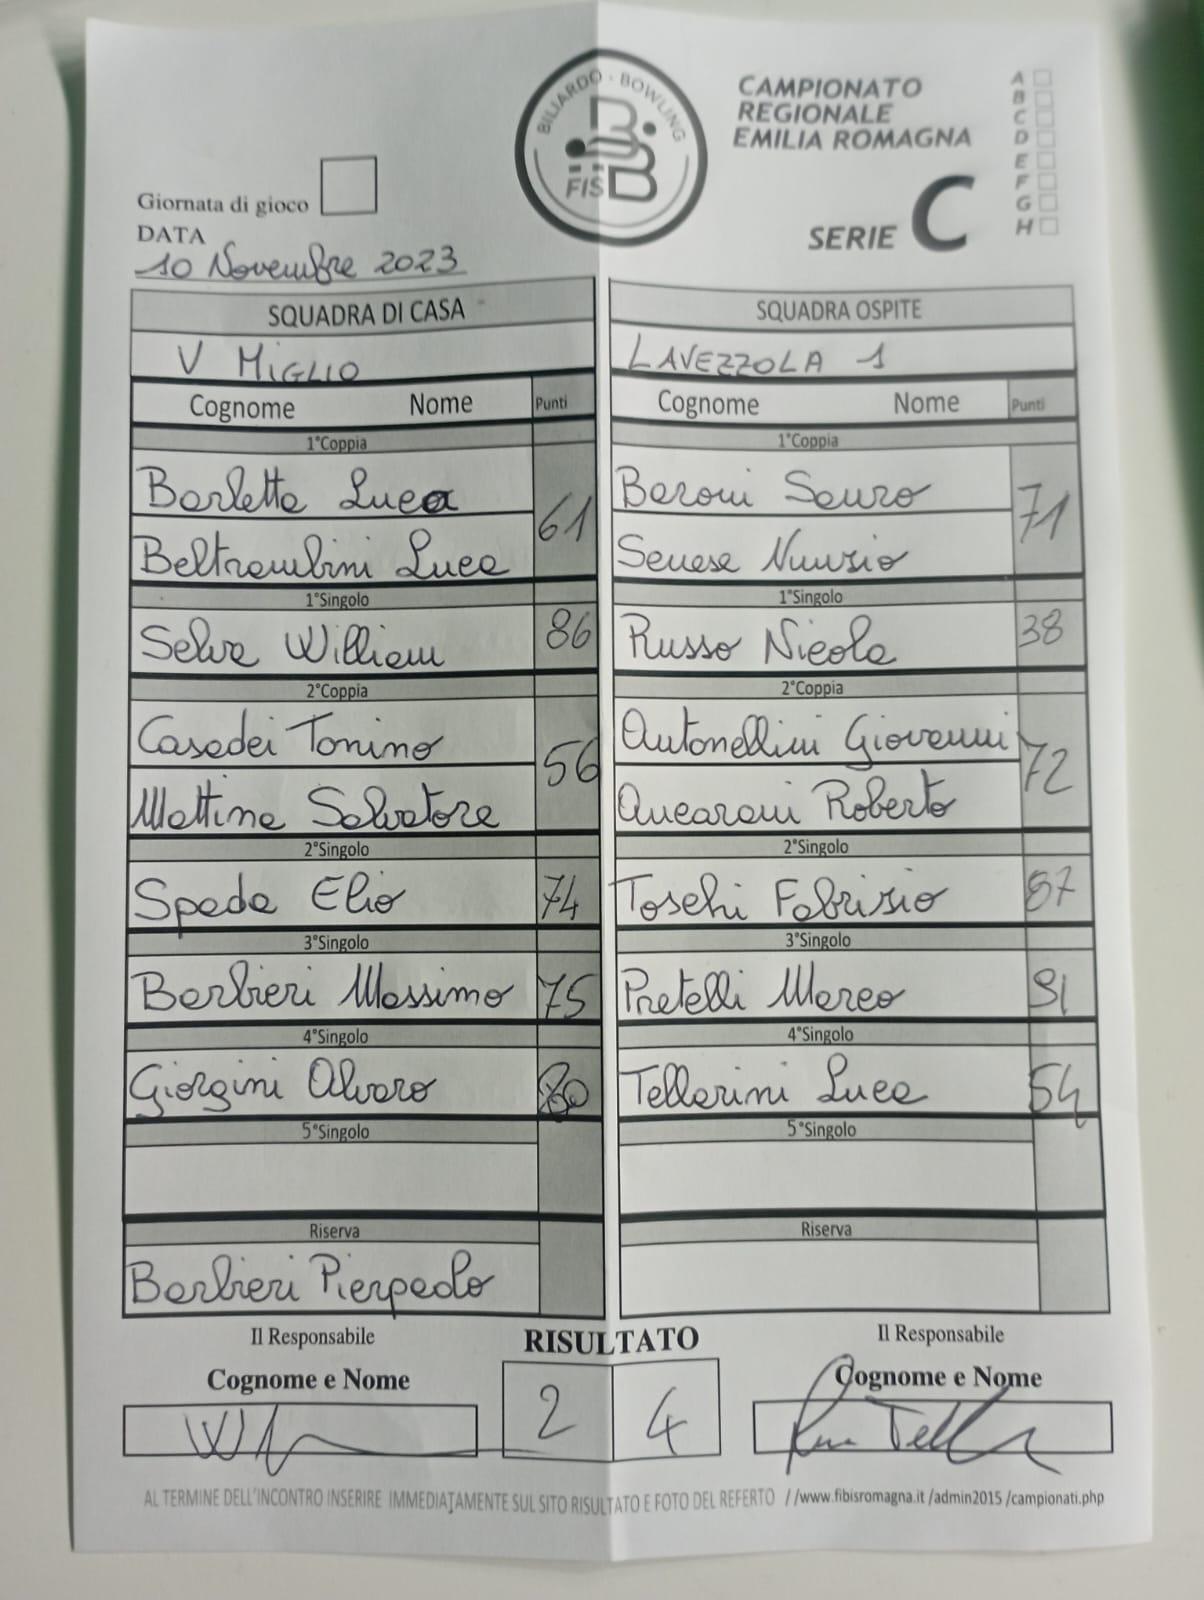 BILIARDO - BOWLING
FISBB
CAMPIONATO
REGIONALE
EMILIA ROMAGNA
SERIE C
A
B
C
D
E
F
G
H
Giornata di gioco
DATA
10 Novembre 2023
SQUADRA DI CASA
V MIGLIO
Cognome Nome Punti
1°Coppia
Barletta Luca
Beltrambini Luca
61
1°Singolo
Selva William 86
2°Coppia
Casadei Tonino
Mattina Salvatore
56
2°Singolo
Spada Elio 74
3°Singolo
Barbieri Massimo 75
4°Singolo
Giorgini Alvaro 80
5°Singolo
Riserva
Barbieri Pierpaolo
SQUADRA OSPITE
LAVEZZOLA 1
Cognome Nome Punti
1°Coppia
Baroni Sauro
Senese Nunzio
71
1°Singolo
Russo Nicola 38
2°Coppia
Antonellini Giovanni
Ancarani Roberto
72
2°Singolo
Toschi Fabrizio 87
3°Singolo
Pretelli Marco 91
4°Singolo
Tellarini Luca 54
5°Singolo
Riserva
Il Responsabile
Cognome e Nome
RISULTATO
2 4
Il Responsabile
Cognome e Nome
AL TERMINE DELL'INCONTRO INSERIRE IMMEDIATAMENTE SUL SITO RISULTATO E FOTO DEL REFERTO //www.fibisromagna.it /admin2015 /campionati.php